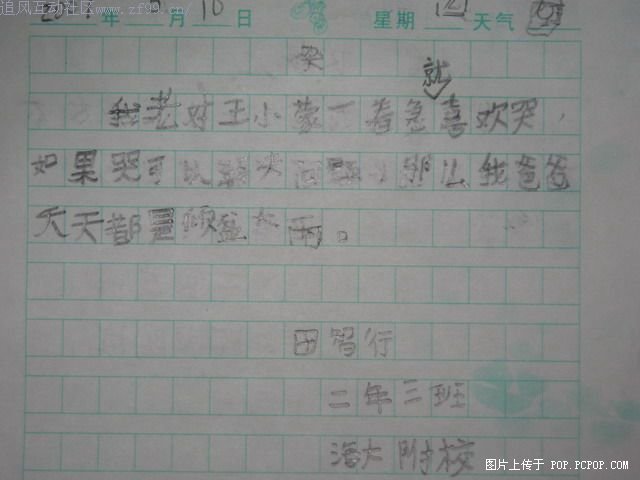 追风互动社区www.zf99.cn
年 月 10 日 星期 天气
哭
我老对王小蒙一着急就喜欢哭，
如果哭可以解决问题，那么我爸爸
天天都是倾盆大雨。
田智行
二年三班
海大附校
图片上传于 POP.PCPOP.COM